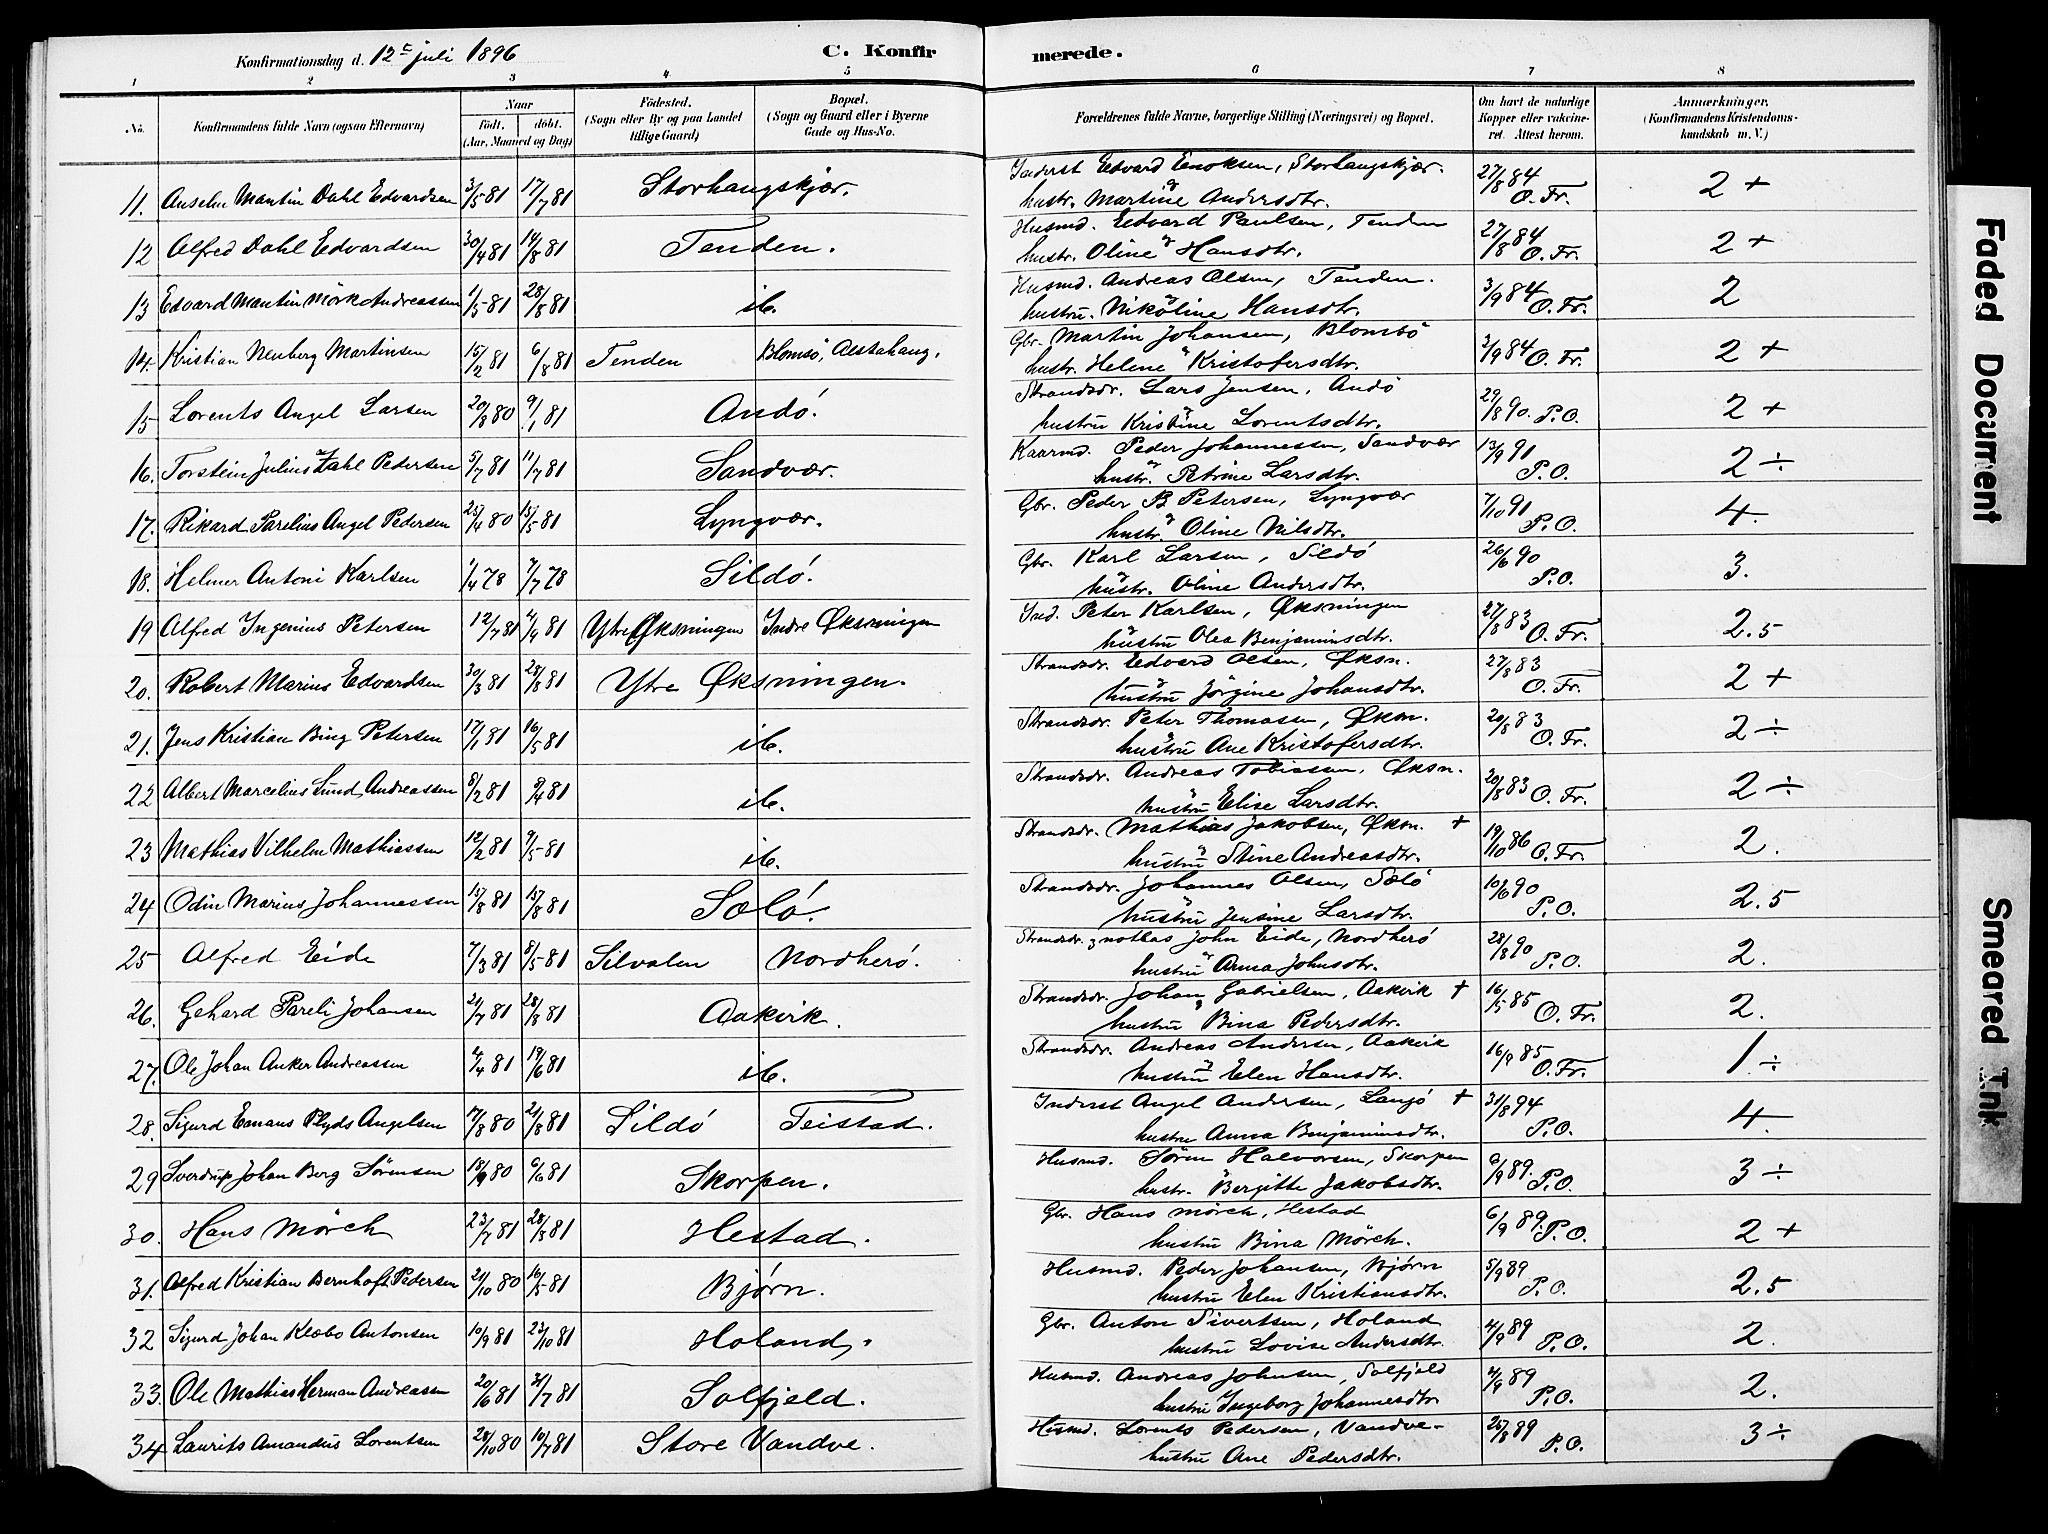 Konfirmationsdag d. 12te juli 1896 C. Konfirmerede.
1 2 3 4 5 6 7 8
No. Konfirmandens fulde Navn (ogsaa Efternavn) Naar Födt. döbt. (Aar, Maaned og Dag) Födested. (Sogn eller By og paa Landet tillige Gaard) Bopæl. (Sogn og Gaard eller i Byerne Gade og Hus-No. Forældrenes fulde Navne, borgerlige Stilling (Næringsvei) og Bopæl. Om havt de naturlige Kopper eller vakcineret. Attest herom. Anmærkninger. (Konfirmandens Kristendomskundskab m. V.)
11. Anselm Martin Dahl Edvardsen 3/5 81 17/7 81 Storhaugskjær. Inderst Edvard Enoksen, Storhaugskjær. 27/8 84 O. Fr. 2 +
hustr. Martine Andersdtr.
12 Alfred Dahl Edvardsen 30/4 81 14/8 81 Tenden. Husmd. Edvard Paulsen, Tenden 27/8 84 O. Fr. 2 +
hustr. Oline Hansdtr.
13 Edvard Martin Mörk Andreassen 1/5 81 28/8 81 ib. Husmd. Andreas Olsen, Tenden. 3/9 84 O. Fr. 2
hustru. Nikoline Hansdtr.
14. Kristian Neuberg Martinsen 15/2 81 6/8 81 Tenden Blomsö, Alstahaug. Gbr. Martin Johansen, Blomsö 3/9 84 O. Fr. 2 +
hustr. Helene Kristofersdtr.
15 Lorents Angel Larsen 20/8 80 9/1 81 Andö. Strandsdr. Lars Jensen, Andö 29/8 90. P. O. 2 +
hustru Kristine Lorentsdtr.
16. Torstein Julius Zahl Pedersen 5/7 81 11/7 81 Sandvær. Kaarmd. Peder Johannessen, Sandvær 13/9 91 P. O. 2 ÷
hustr. Petrine Larsdtr.
17. Rikard Parelius Angel Pedersen 25/4 80 15/5 81 Lyngvær. Gbr. Peder B Petersen, Lyngvær 7/10 91 P. O. 4.
hustr. Oline Nilsdtr.
18. Helmer Antoni Karlsen 1/4 78 7/7 78 Sildö. Gbr. Karl Larsen, Sildö 26/6 90 P. O. 3.
hustr. Oline Andersdtr.
19 Alfred Ingenius Petersen 12/7 81 4/9 81 Ytre Øksningen Indre Øksningen Ind. Peter Karlsen, Øksningen 27/8 83 O. Fr. 2.5
hustru Olea Benjaminsdtr.
20. Robert Marius Edvardsen 30/3 81 28/8 81 Ytre Øksningen. Strandsdr. Edvard Olsen, Øksn. 27/8 83 O. Fr. 2 +
hustru Jörgine Johansdtr.
21. Jens Kristian Bing Petersen 17/1 81 16/5 81 ib. Strandsdr. Peter Thomassen, Øksn. 20/8 83 O. Fr. 2 ÷
hustru Ane Kristofersdtr.
22 Albert Marcelius Lund Andreassen 8/2 81 9/4 81 ib. Strandsdr. Andreas Tobiassen, Øksn. 20/8 83 O. Fr. 2 ÷
hustru Elise Larsdtr.
23 Mathias Vilhelm Mathiassen 12/2 81 9/5 81 ib. Strandsdr. Mathias Jakobsen, Øksn. + 19/10 86 O. Fr. 2.
hustru Stine Andreasdtr.
24 Odin Marius Johannessen 15/8 81 15/8 81 Solö. Strandsdr. Johannes Olsen, Solö 10/6 90 P. O. 2.5
hustru Jensine Larsdtr.
25 Alfred Eide 7/3 81 8/5 81 Silvalen Nordherö. Strandsdr. & notbas John Eide, Nordherö 28/8 90 P. O. 2.
hustru Anna Johnsdtr.
26. Gehard Pareli Johansen 21/7 81 28/8 81 Aakvik. Strandsdr. Johan Gabrielsen, Aakvik + 16/5 85 O. Fr. 2.
hustru Bina Pedersdtr.
27. Ole Johan Anker Andreassen 4/4 81 19/6 81 ib. Strandsdr. Andreas Andersen, Aakvik 16/9 85 O. Fr. 1 ÷
hustru Elen Hansdtr.
28. Sigurd Emaus Plyds Angelsen 17/8 80 21/8 81 Sildö Teistad. Inderst Angel Andersen, Langö + 31/8 94 P. O. 4.
hustru Anna Benjaminsdtr.
29 Sverdrup Johan Berg Sörensen 18/9 80 6/6 81 Skorpen. Husmd. Sören Halvorsen, Skorpen 6/9 89. P. O. 3 ÷
hustr. Bergitte Jakobsdtr.
30. Hans Mörch 23/7 81 28/8 81 Hestad. Gbr. Hans Mörch, Hestad 6/9 89. P. O. 2 +
hustru Bina Mörch.
31. Alfred Kristian Bernhoft Pedersen 21/10 80 16/5 81 Bjørn. Husmd. Peder Johansen, Bjørn 5/9 89 P. O. 2.5
hustru Elen Kristiansdtr.
32 Sigurd Johan Klæbo Antonsen 10/9 81 23/10 81 Holand. Gbr. Anton Sivertsen, Holand 4/9 89 P. O. 2.
hustru Lovise Andersdtr.
33. Ole Mathias Herman Andreassen 20/6 81 31/7 81 Solfjeld. Husmd. Andreas Johnsen, Solfjeld 4/9 89 P. O. 2.
hustru Ingeborg Johannesdtr.
34 Laurits Amandus Lorentsen 28/10 80 10/7 81 Store Vandve. Husmd. Lorents Pedersen, Vandve- 25/8 89 P. O. 3 ÷
hustru Ane Pedersdtr.
Faded Document
Smeared Ink